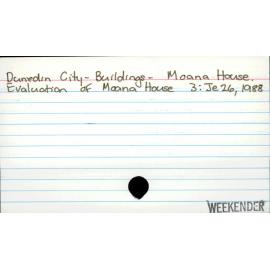 Dunedin City - Buildings - Moana House.
Evaluation of Moana House 3: Je 26, 1988
WEEKENDER